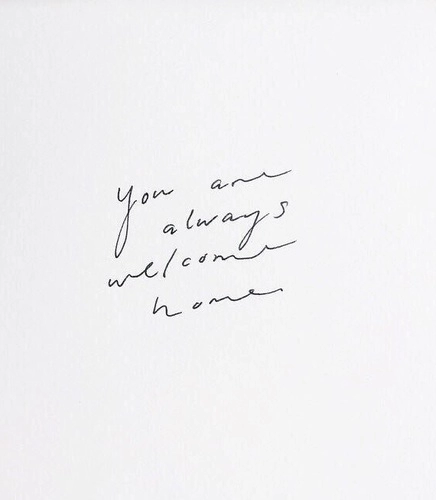 You are
always
welcome
home.